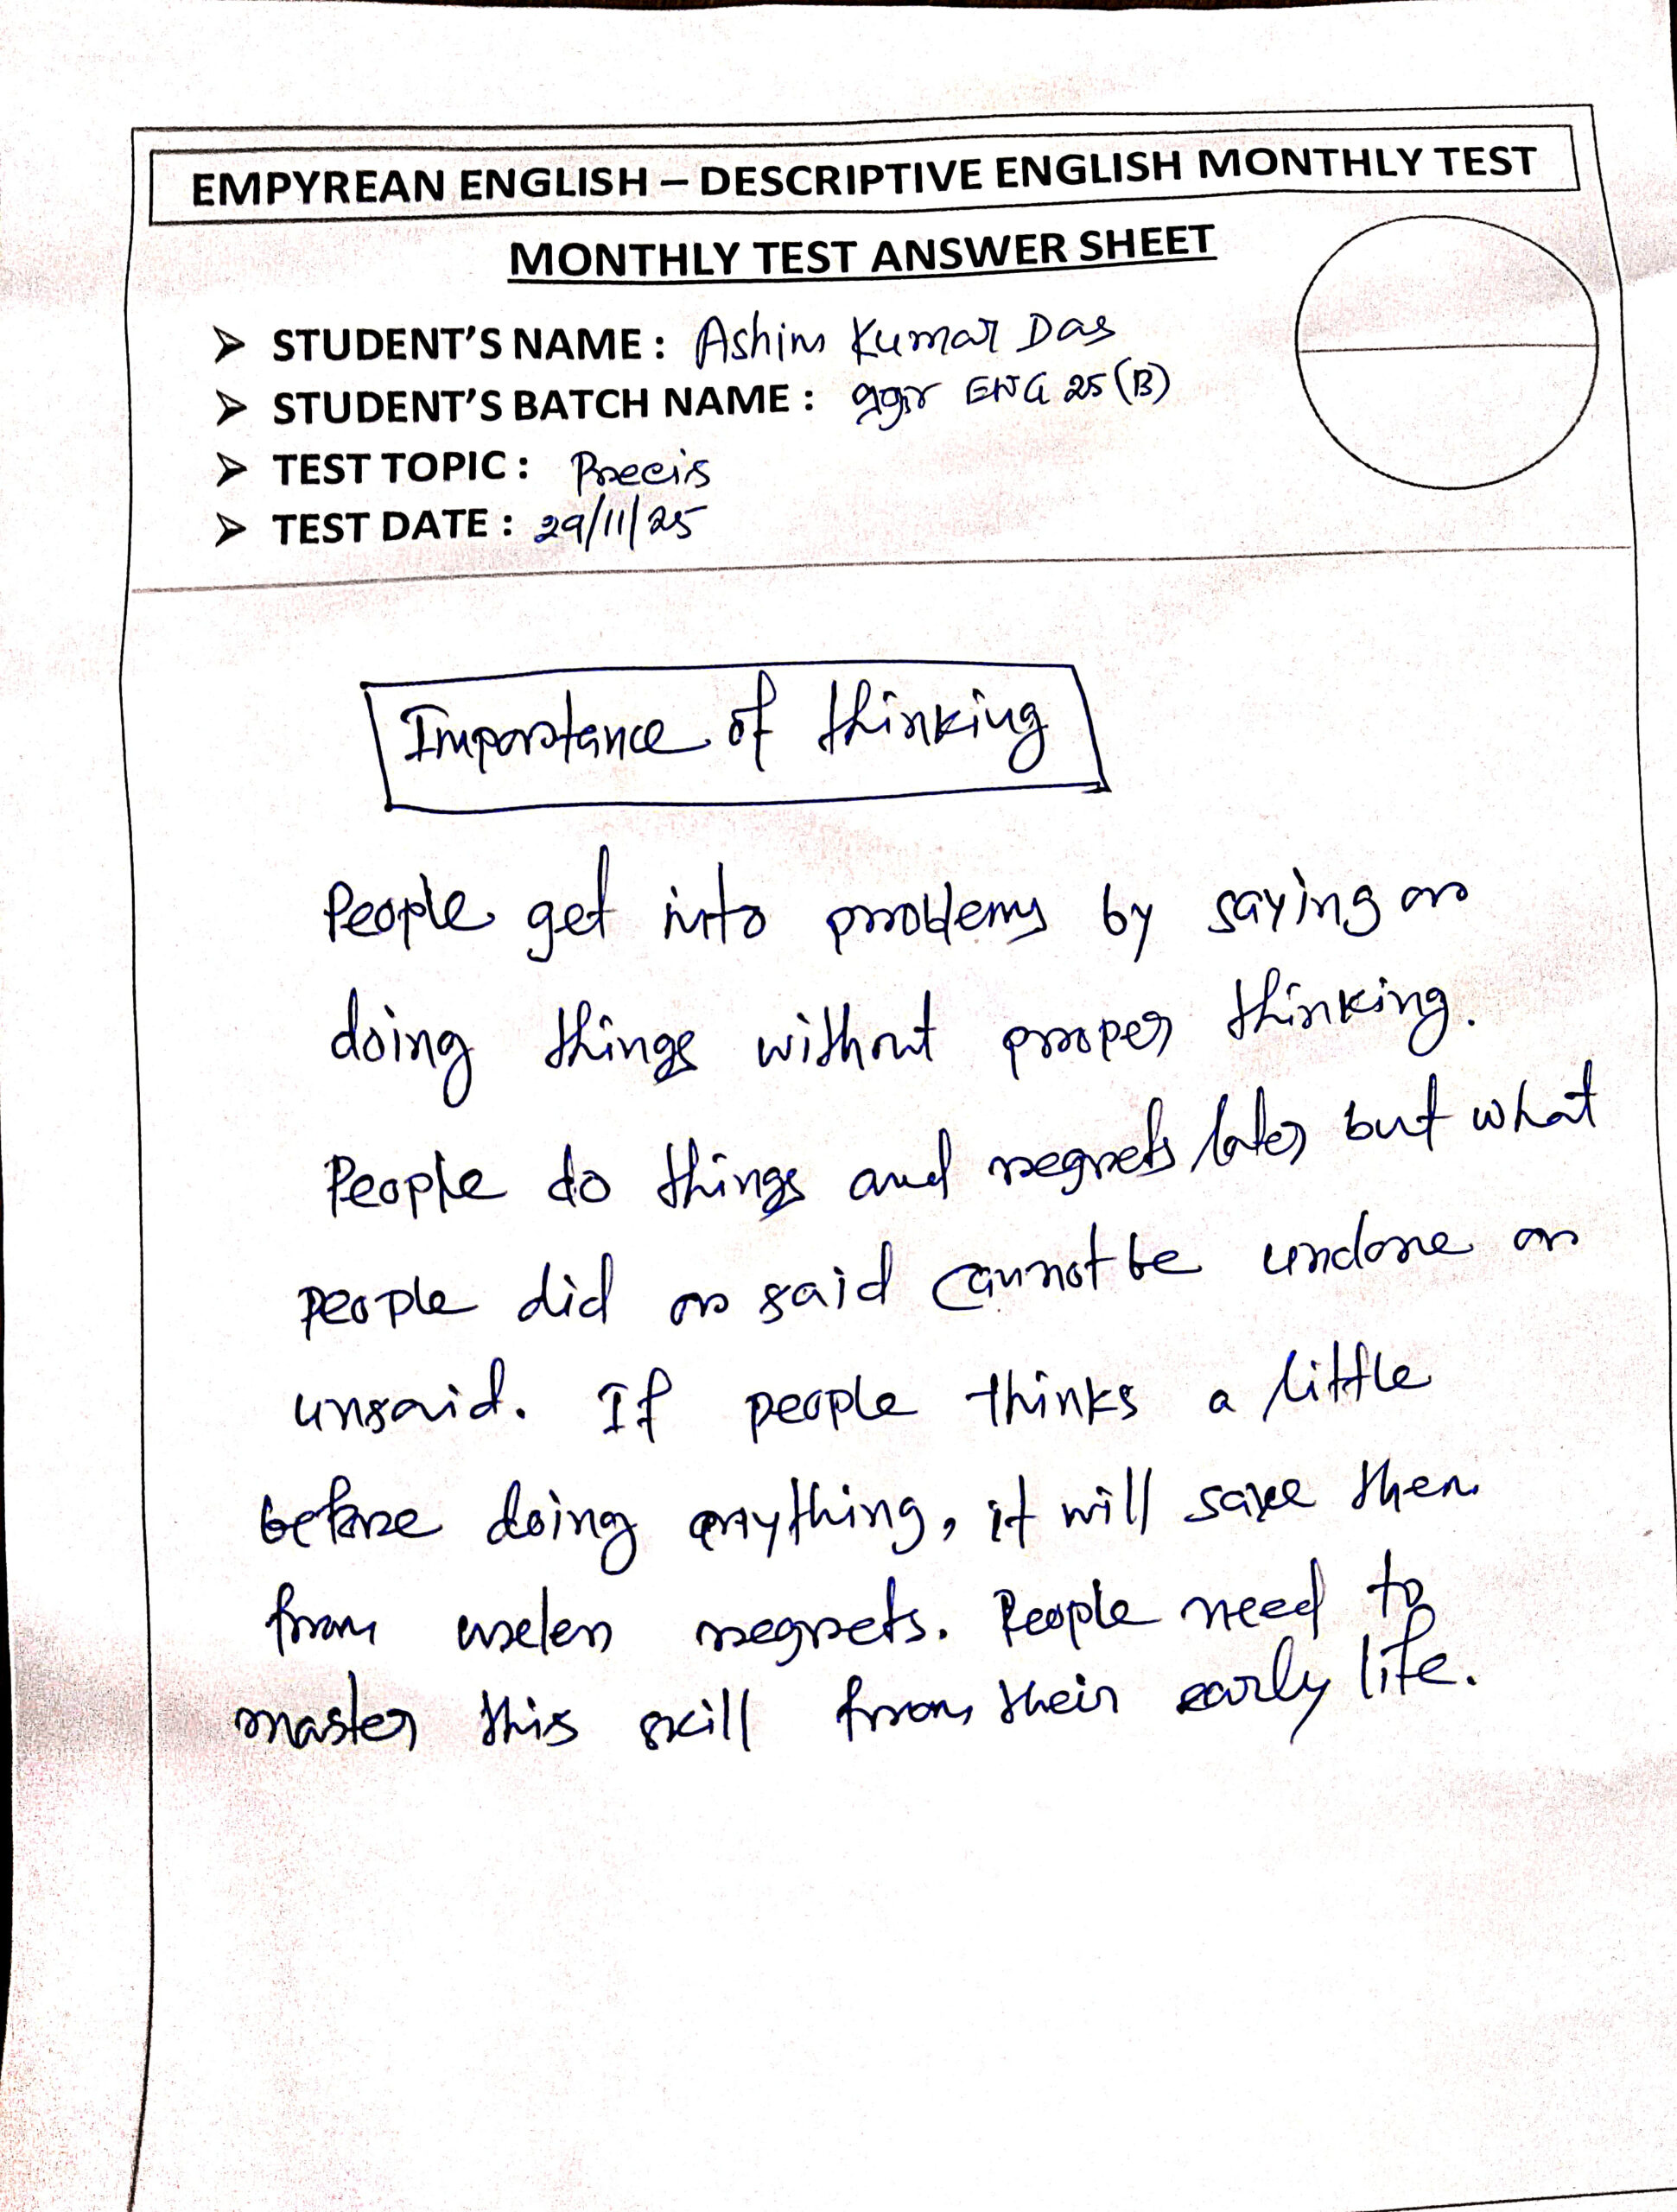 EMPYREAN ENGLISH – DESCRIPTIVE ENGLISH MONTHLY TEST
MONTHLY TEST ANSWER SHEET
➤ STUDENT'S NAME : Ashim Kumar Das
➤ STUDENT'S BATCH NAME : ENG 25 (B)
➤ TEST TOPIC : Precis
➤ TEST DATE : 29/11/25
Importance of thinking
People get into problems by saying or
doing things without proper thinking.
People do things and regrets later but what
people did or said cannot be undone or
unsaid. If people thinks a little
before doing anything, it will save them
from useless regrets. People need to
master this skill from their early life.